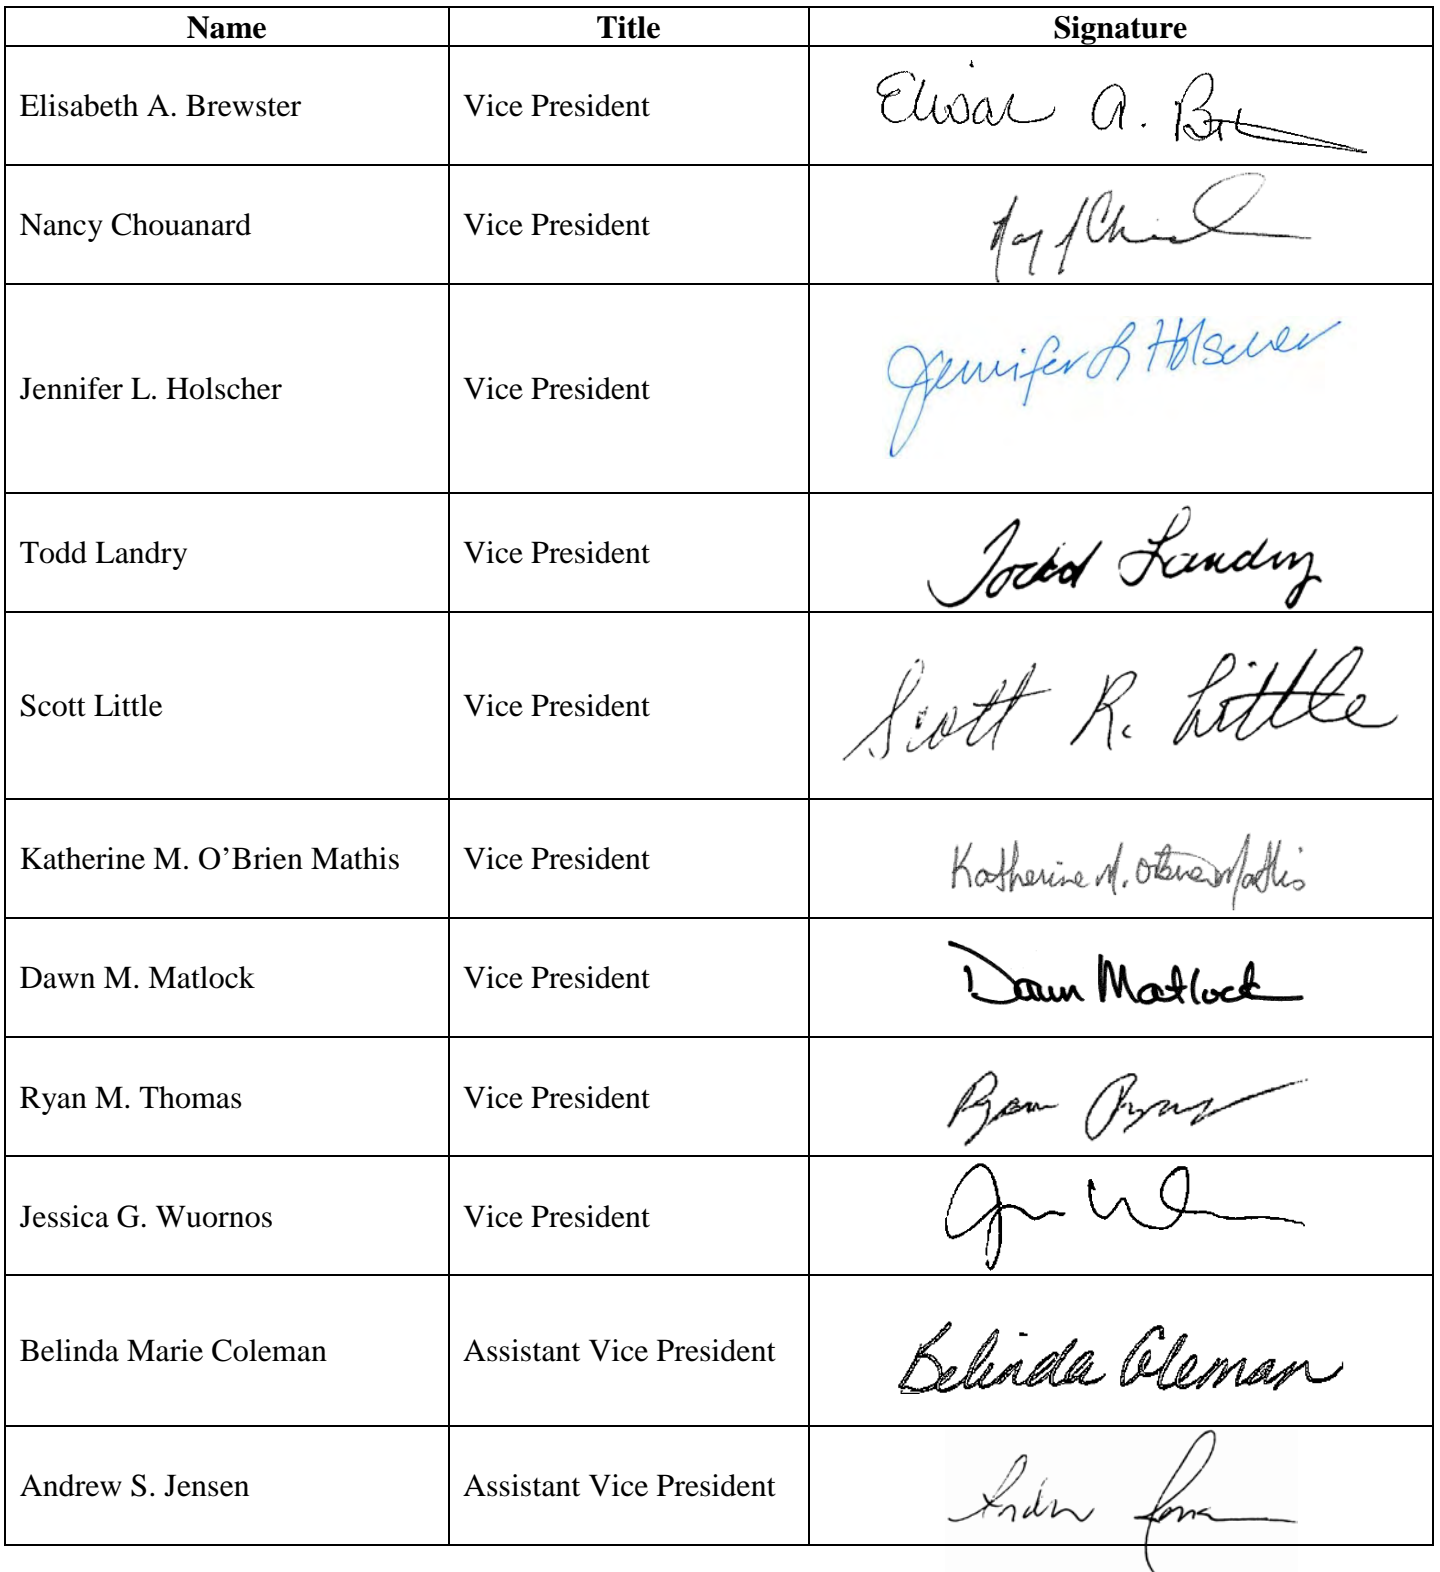 Name Title Signature
Elisabeth A. Brewster Vice President A.
Nancy Chouanard Vice President
Jennifer L. Holscher Vice President Jennifer L Holscher
Todd Landry Vice President Todd Landry
Scott Little Vice President Scott R. Little
Katherine M. O’Brien Mathis Vice President Katherine M. O'Brien Mathis
Dawn M. Matlock Vice President Dawn Matlock
Ryan M. Thomas Vice President Ryan
Jessica G. Wuornos Vice President
Belinda Marie Coleman Assistant Vice President Belinda Coleman
Andrew S. Jensen Assistant Vice President